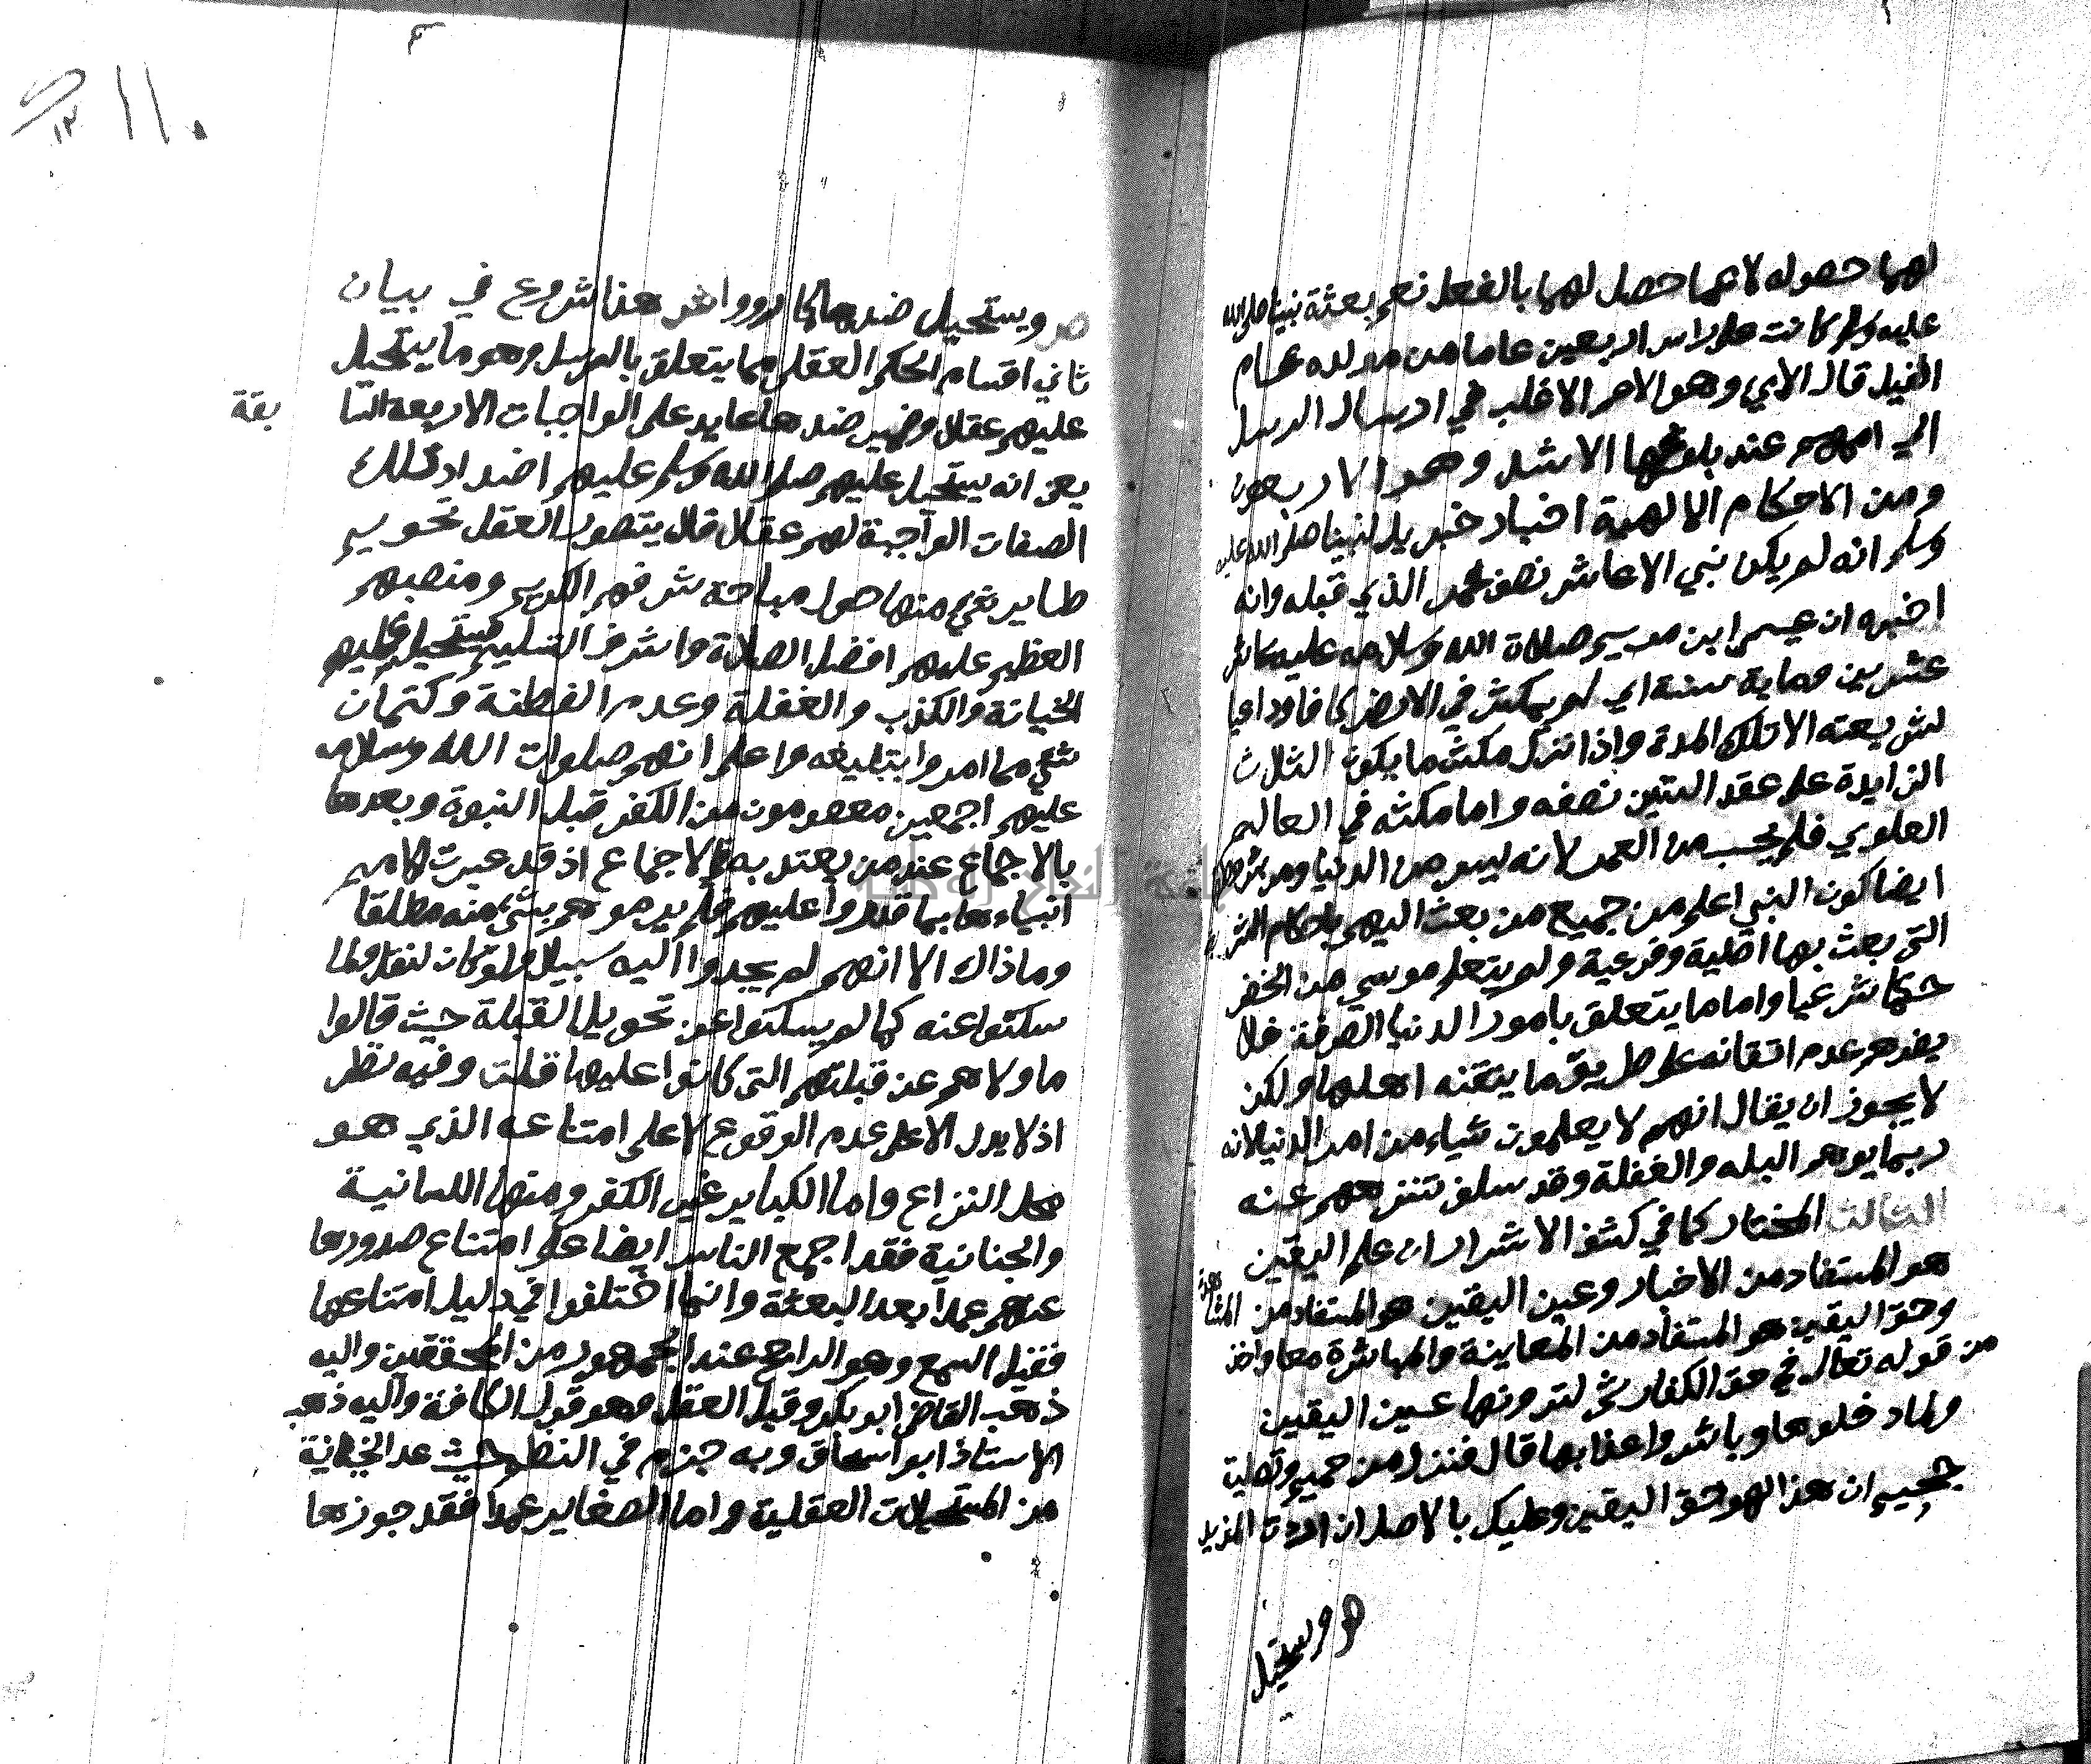 لهما حصوله لا عما حصل لهما بالفعل نعم بعثة نبينا صلى الله
عليه وسلم كانت على راس اربعين عاما من مولده عام
الفيل قال الابي وهو الامر الاغلب في ارسال الرسل
الي اممهم عند بلوغها الاشد وهو الاربعون
ومن الاحكام الالهية اخبار جبريل لنبينا صلى الله عليه
وسلم انه لم يكن نبي الا عاش نصف عمر الذي قبله وانه
اخبره ان عيسى ابن مريم صلاة الله وسلامه عليه عاش
عشرين وماية سنة اي لم يمكث في الارض داعيا
لشريعته الا تلك المدة واذا نزل مكث ما يكون الثلاث
الزايدة على عقد الستين نصفه واما مكثه في العالم
العلوي فلم يحسب من العمر لانه ليس من الدنيا ومن شروطها
ايضا كون النبي اعلم من جميع من بعث اليهم باحكام الشريعة
التي بعث بها اصلية وفرعية ولم يتعلم موسي من الخضر
حكما شرعيا واما ما يتعلق بامور الدنيا الصرفة فلا
يضرهم عدم اتقانه على طريق ما يتقنه اهلها ولكن
لا يجوز ان يقال انهم لا يعلمون شياء من امر الدنيا لانه
ربما يوهم البله والغفلة وقد سلف تنزههم عنه
الثالث المختار كما في كشف الاسرار ان علم اليقين
هو المستفاد من الاخبار وعين اليقين هو المستفاد من المشاهدة
وحق اليقين هو المستفاد من المعاينة والمباشرة معا واخذ
من قوله تعالى في حق الكفار ثم لترونها عين اليقين
ولما دخلوها وباشروا عذابها قال فنزل من حميم وتصلية
جحيم ان هذا لهو حق اليقين وعليك بالاصل ان اردت المزيد
ص ويستحيل
ص ويستحيل ضدها كما رووا ش هذا شروع في بيان
ثاني اقسام الحكم العقلي مما يتعلق بالرسل وهو ما يستحيل
عليهم عقلا وضمير ضدها عايد على الواجبات الاربعة السا
بقة
يعني انه يستحيل عليهم صلى الله وسلم عليهم اضداد تلك
الصفات الواجبة لهم عقلا فلا يتصور العقل تحويم
طاير شي منها حول مباحة شرفهم الكريم ومنصبهم
العظيم عليهم افضل الصلاة واشرف التسليم فيستحيل عليهم
الخيانة والكذب والغفلة وعدم الفطنة وكتمان
شي مما امروا بتبليغه واعلم انهم صلوات الله وسلامه
عليهم اجمعين معصومون من الكفر قبل النبوة وبعدها
بالاجماع عند من يعتد به في الاجماع اذ قد عيرت الامم
انبياءها بما قدروا عليهم فلم يرموهم بشيء منه مطلقا
وما ذاك الا انهم لم يجدوا اليه سبيلا ولو كان لنقل ولما
سكتوا عنه كما لم يسكتوا عن تحويل القبلة حيث قالوا
ما ولاهم عن قبلتهم التي كانوا عليها قلت وفيه نظر
اذ لا يدل الا على عدم الوقوع لا على امتناعه الذي هو
محل النزاع واما الكباير غير الكفر ومنها اللسانية
والجنانية فقد اجمع الناس ايضا على امتناع صدورها
عنهم عمدا بعد البعثة وانما اختلفوا في دليل امتناعها
فقيل السمع وهو الراجح عند الجمهور من المحققين واليه
ذهب القاضي ابو بكر وقيل العقل وهو قول الكافة واليه ذهب
الاستاذ ابو اسحاق وبه جزم في النظم حيث عد الخيانة
من المستحيلات العقلية واما الصغاير عمدا فقد جوزها
١١٠